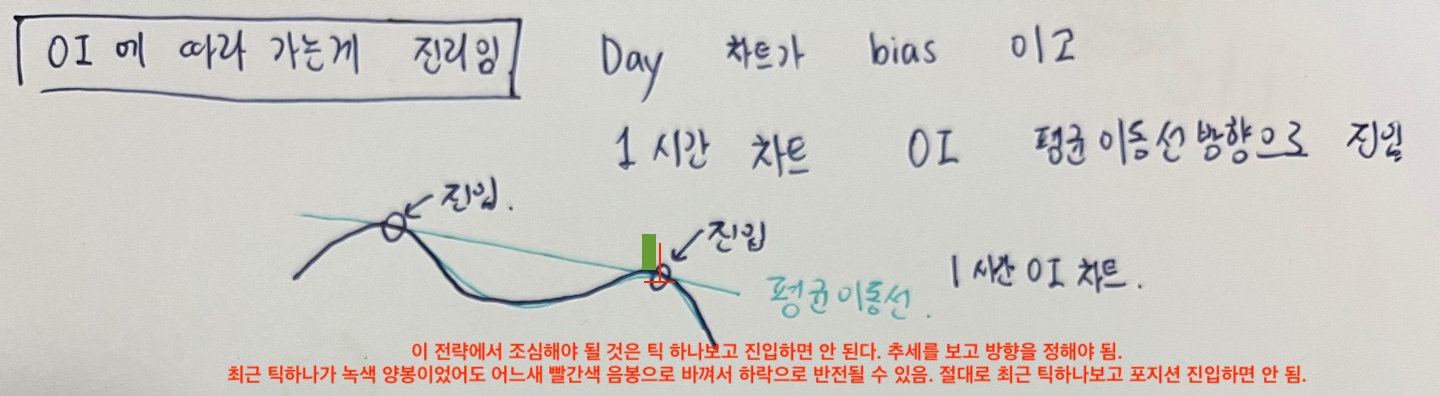 OI에 따라 가는게 진리임
Day 차트가 bias 이고
1시간 차트 OI 평균이동선방향으로 진입
진입.
진입
평균이동선.
1시간 OI 차트.
이 전략에서 조심해야 될 것은 틱 하나보고 진입하면 안 된다. 추세를 보고 방향을 정해야 됨.
최근 틱하나가 녹색 양봉이었어도 어느새 빨간색 음봉으로 바껴서 하락으로 반전될 수 있음. 절대로 최근 틱하나보고 포지션 진입하면 안 됨.